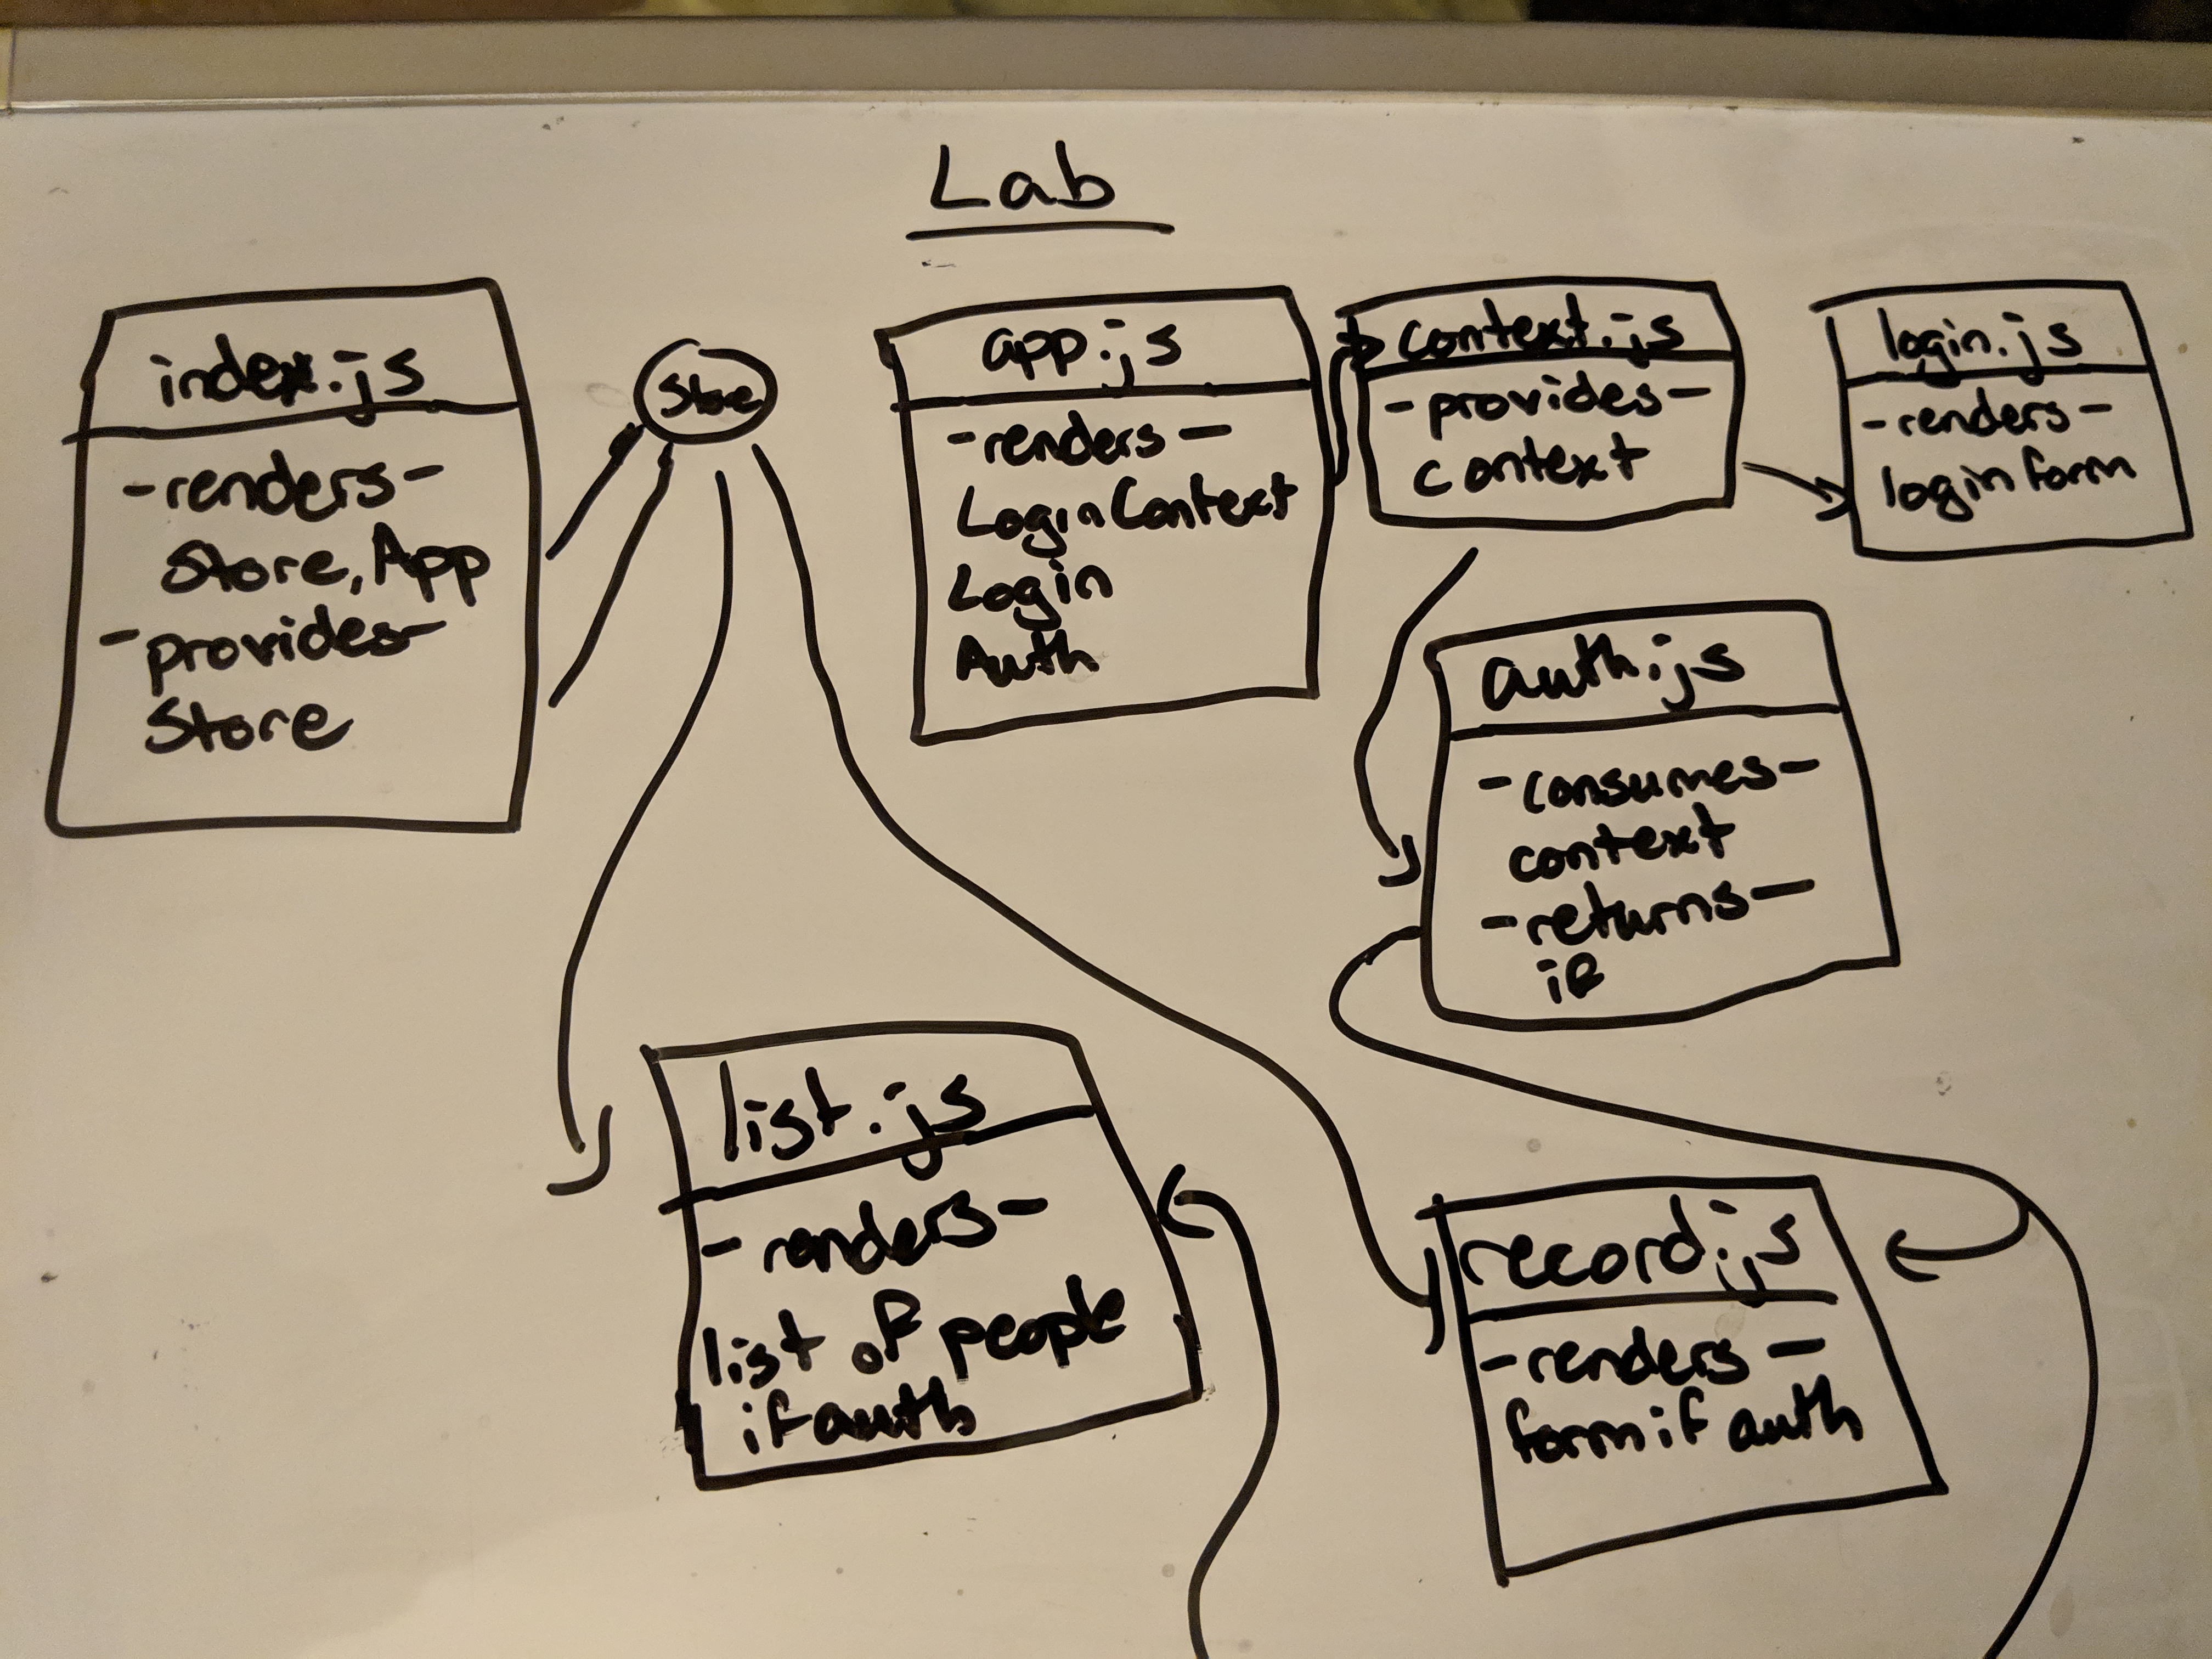 Lab
index.js
-renders-
Store, App
-provides-
Store
Store
app.js
-renders-
LoginContext
Login
Auth
context.js
-provides-
context
login.js
-renders-
login form
auth.js
-consumes-
context
-returns-
if
list.js
-renders-
list of people
if auth
record.js
-renders-
form if auth